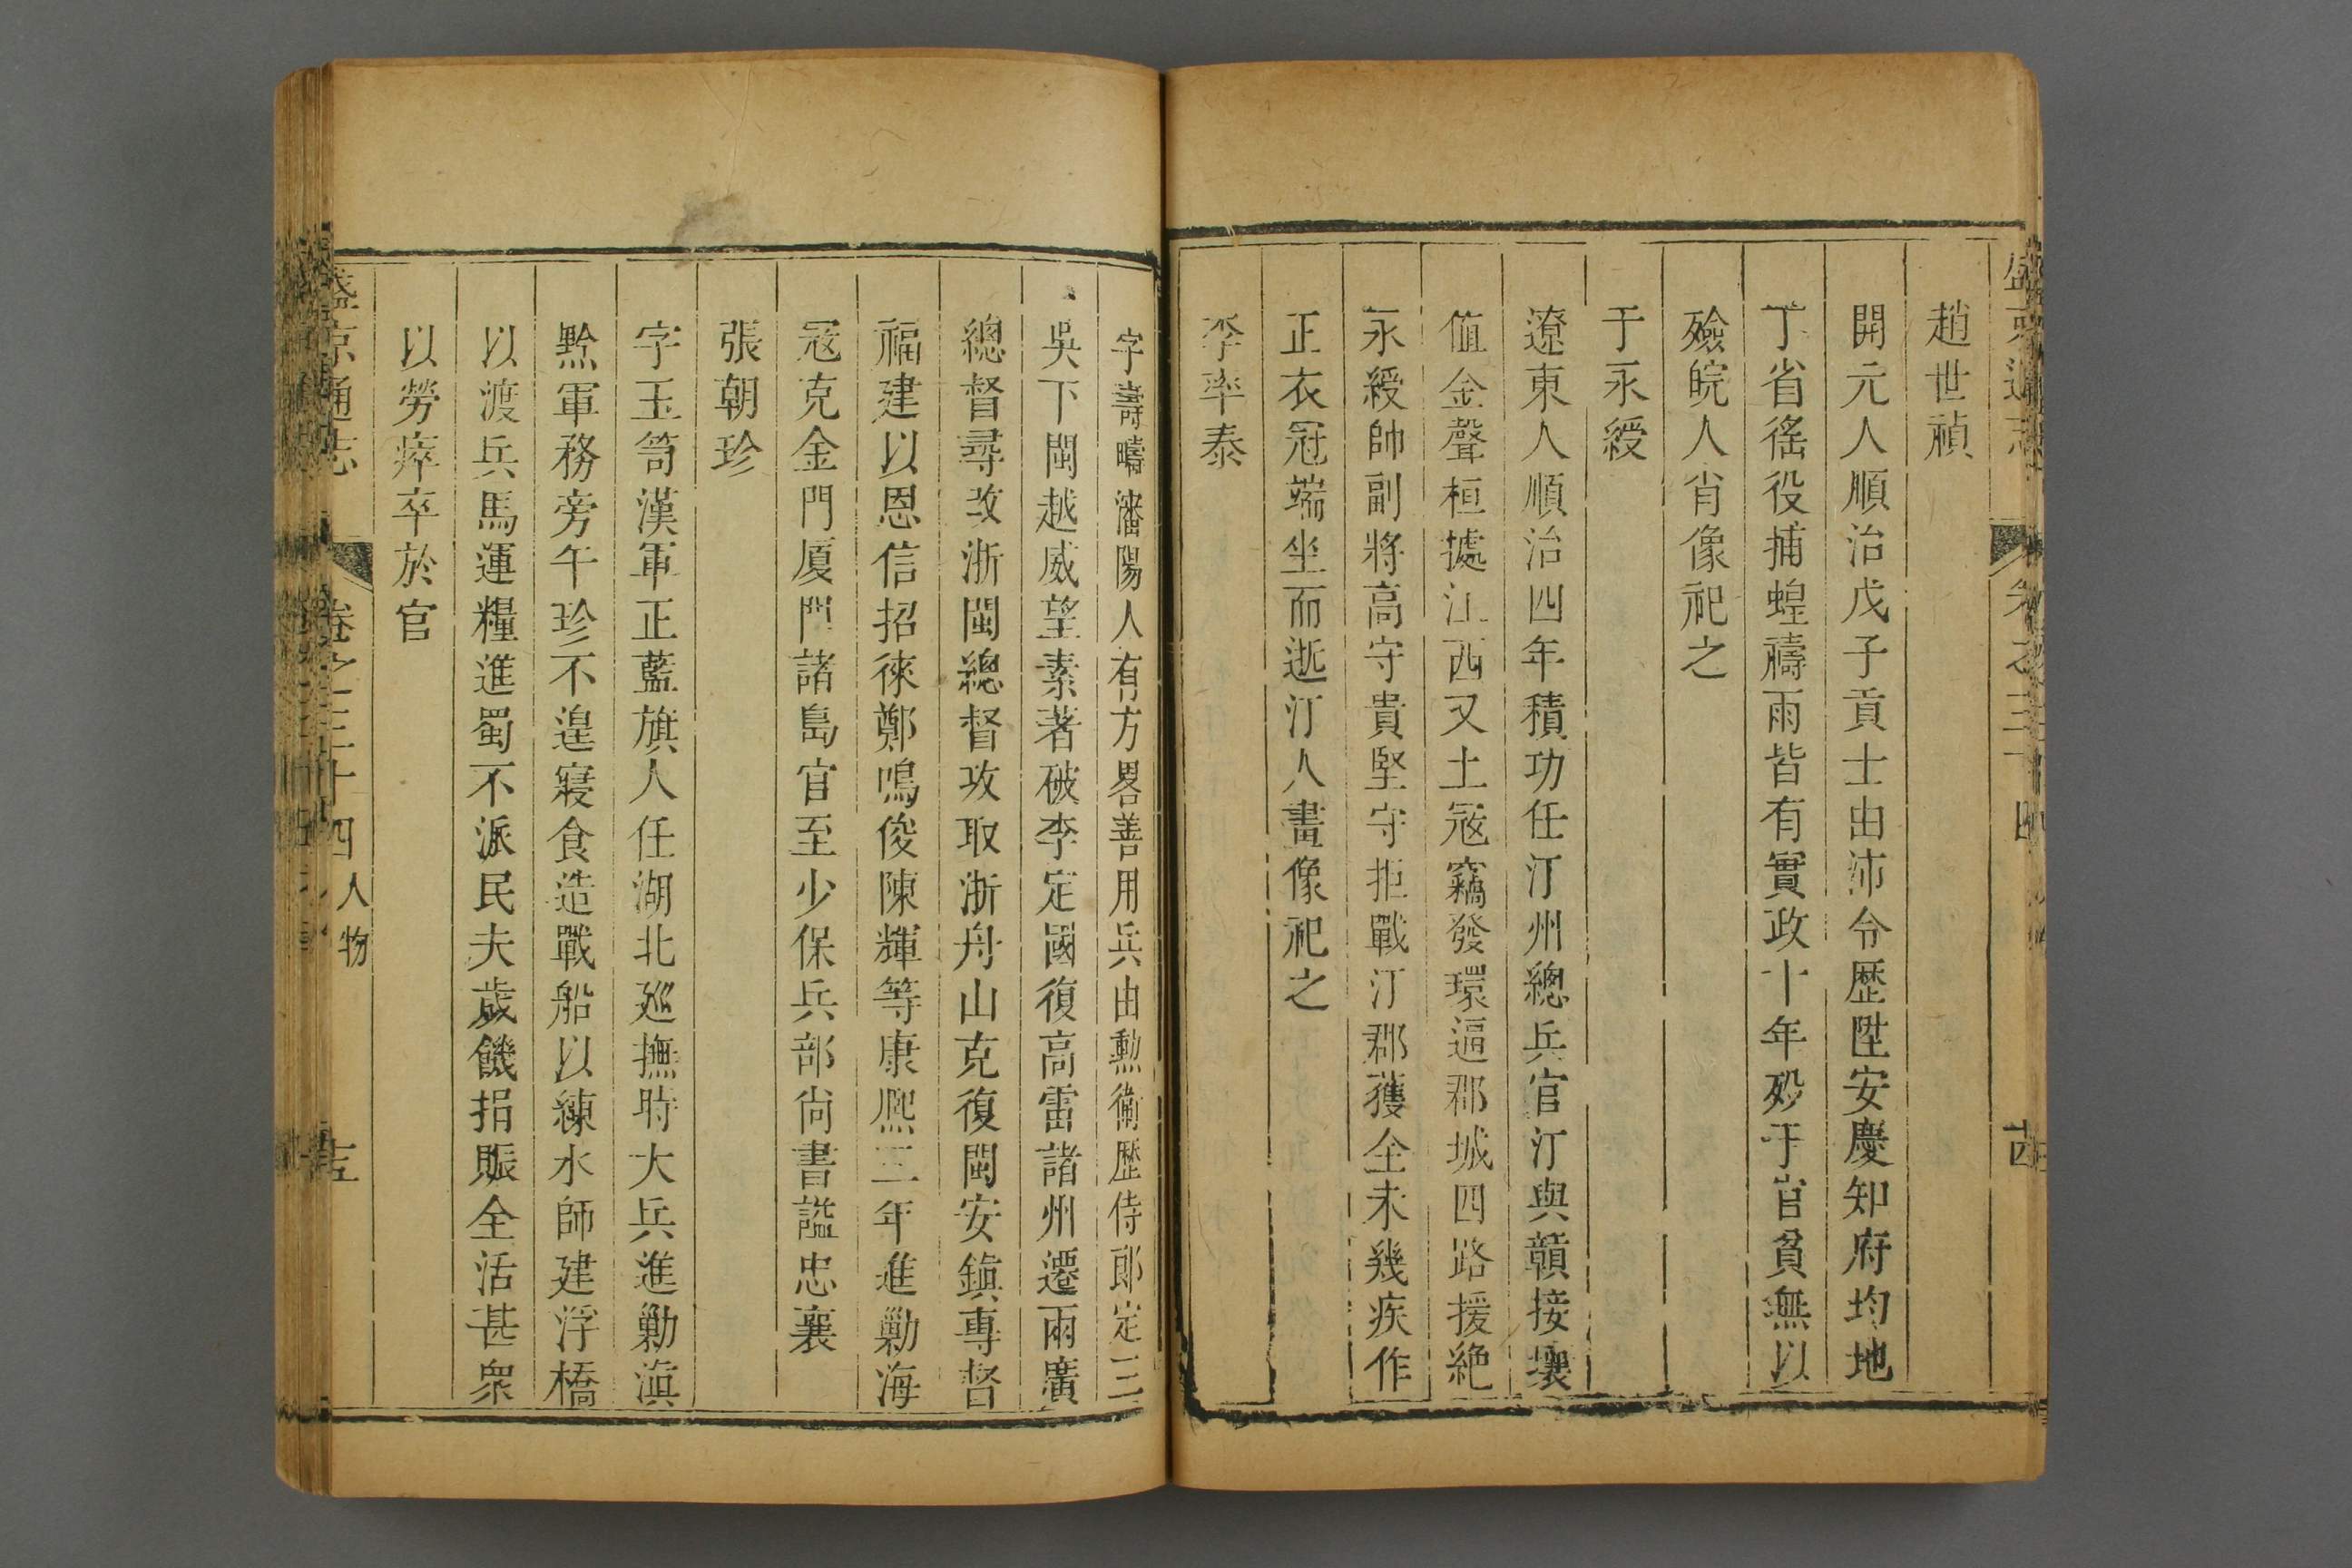 趙世禎
開元人順治戊子貢士由沛令歷陞安慶知府均地
丁省徭役捕蝗禱雨皆有實政十年歿于官貧無以
殮皖人肖像祀之
于永綬
遼東人順治四年積功任汀州總兵官汀與贛接壤
值金聲桓據江西又土寇竊發環逼郡城四路援絶
永綬帥副將高守貴堅守拒戰汀郡獲全未幾疾作
正衣冠端坐而逝汀人畫像祀之
李率泰
字壽疇瀋陽人有方畧善用兵由勲衛歷侍郎定三
吳下閩越威望素著破李定國復高雷諸州遷兩廣
總督尋改浙閩總督攻取浙舟山克復閩安鎮專督
福建以恩信招徠鄭鳴俊陳輝等康熙二年進勦海
寇克金門厦門諸島官至少保兵部尚書諡忠襄
張朝珍
字玉笥漢軍正藍旗人任湖北廵撫時大兵進勦滇
黔軍務旁午珍不遑寢食造戰船以練水師建浮橋
以渡兵馬運糧進蜀不派民夫歲饑捐賑全活甚衆
以勞瘁卒於官
盛京通志 卷之三十四 人物